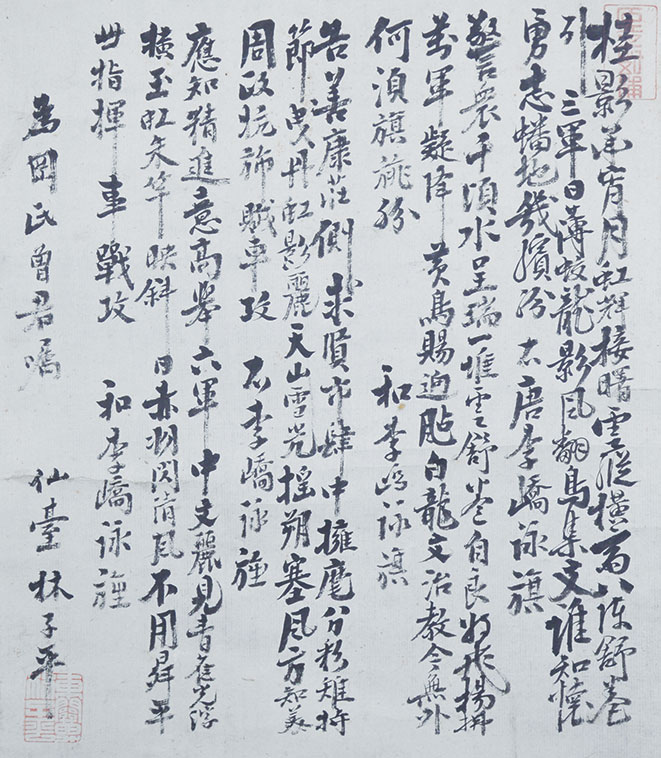 桂影承宵月虹輝接曙雲縱橫百八陳舒卷
引三軍日薄蛟龍影風翻鳥隼文誰知懷
勇志蟠地幾繽紛 右唐李嶠詠旗
警衆千頃水呈瑞一堆雲舒卷自良將飛揚
萬軍疑降黃鳥賜迎白龍文治教令無外
何須旗旆紛 和李嶠詠旗
告善康莊側求賢市肆中擁麾分彩雉持
節曳丹虹影麗天山雪光搖朔塞風方知美
周政抗旆賦車攻 右李嶠詠旌
應知精進意高舉六軍中文麗見青雀光浮
橫玉虹矢竿映斜日赤羽閃清風不用昇平
世指揮車戰攻 和李嶠詠旌
為岡氏曾君嘱 仙臺林子平